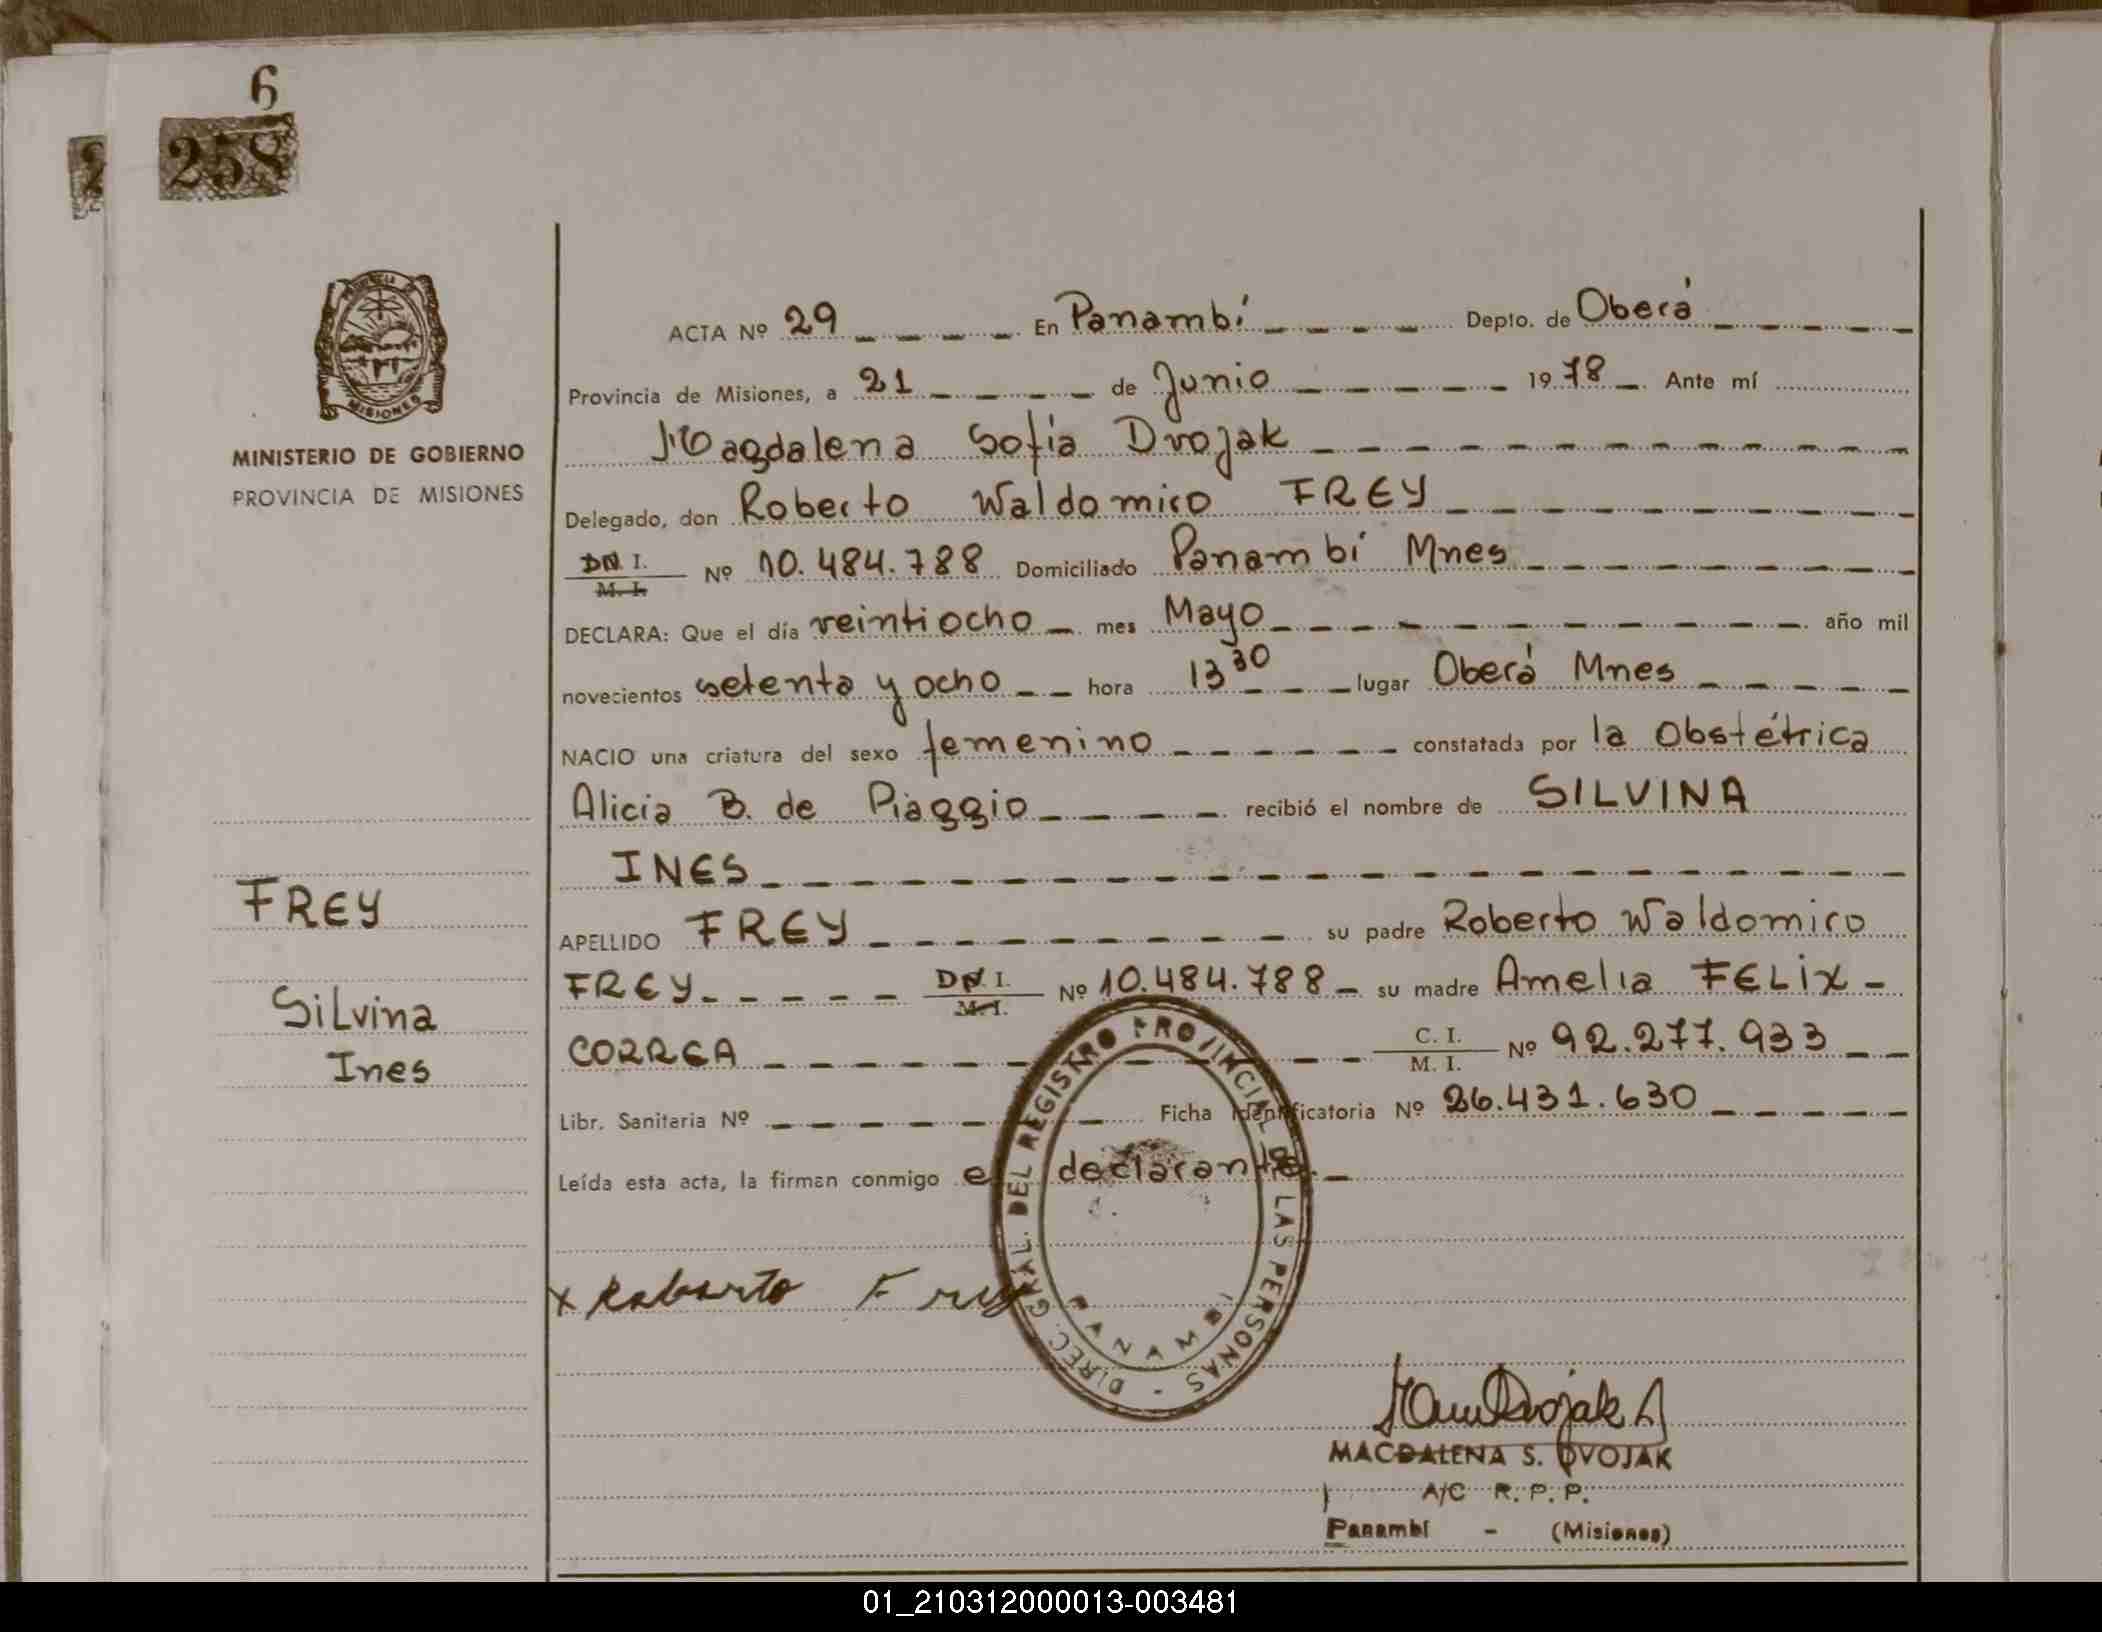 6
258
MISIONES
MINISTERIO DE GOBIERNO
PROVINCIA DE MISIONES
FREY
Silvina
Ines
ACTA Nº 29 En Panambí Depto. de Oberá
Provincia de Misiones, a 21 de Junio 1978 Ante mí
Magdalena Sofía Dvojak
Delegado, don Roberto Waldomiro FREY
DN. I.
M. I. Nº 10.484.788 Domiciliado Panambí Mnes
DECLARA: Que el día veintiocho mes Mayo año mil
novecientos setenta y ocho hora 13 30 lugar Oberá Mnes
NACIO una criatura del sexo femenino constatada por la Obstétrica
Alicia B. de Piaggio recibió el nombre de SILVINA
INES
APELLIDO FREY su padre Roberto Waldomiro
FREY DN. I.
M. I. Nº 10.484.788 su madre Amelia FELIX -
CORREA C. I.
M. I. Nº 92.277.933
Libr. Sanitaria Nº Ficha Identificatoria Nº 26.431.630
Leída esta acta, la firman conmigo el declarante.
x Roberto Frey
DIREC. GRAL. DEL REGISTRO PROVINCIAL DE LAS PERSONAS -
PANAMBI
Dvojak
MAGDALENA S. DVOJAK
A/C R. P. P.
Panambí - (Misiones)
01_210312000013-003481